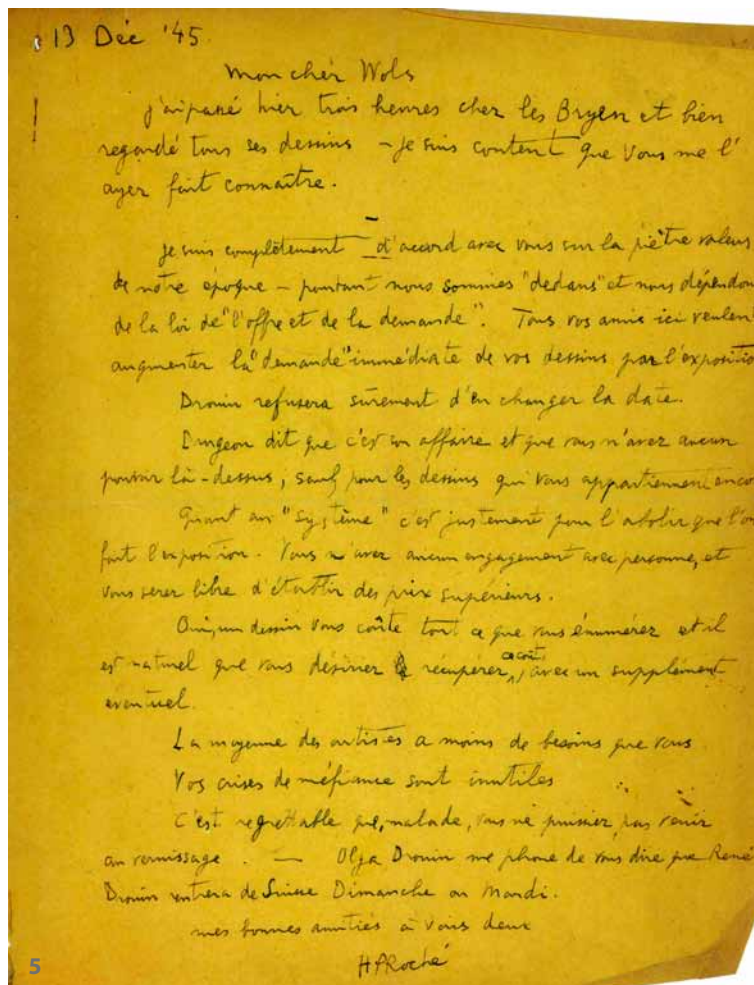 13 Déc '45
Mon cher Wols
j'ai passé hier trois heures chez les Bryen et bien
regardé tous ses dessins – je suis content que vous me l'
ayez fait connaître.
je suis complètement d'accord avec vous sur la piètre valeur
de notre époque – pourtant nous sommes "dedans" et nous dépendon
de la loi de "l'offre et de la demande". Tous vos amis ici veulent
augmenter la "demande" immédiate de vos dessins par l'expositio
Drouin refusera sûrement d'en changer la date.
dit que c'est son affaire et que vous n'avez aucun
pouvoir là-dessus, sauf pour les dessins qui vous appartiennent enco
Quant au "système" c'est justement pour l'abolir que l'on
fait l'exposition. Vous n'avez aucun engagement avec personne, et
vous serez libre d'établir des prix supérieurs.
Oui, un dessin vous coûte tout ce que vous énumérez et il
est naturel que vous désiriez récupérer ce coût, avec un supplément
éventuel.
La moyenne des artistes a moins de besoins que vous
Vos crises de méfiance sont inutiles
C'est regrettable que, malade, vous ne puissiez pas venir
au vernissage. — Olga Drouin me phone de vous dire que René
Drouin rentrera de Suisse Dimanche ou Mardi.
mes bonnes amitiés à vous deux
HPRoché
5